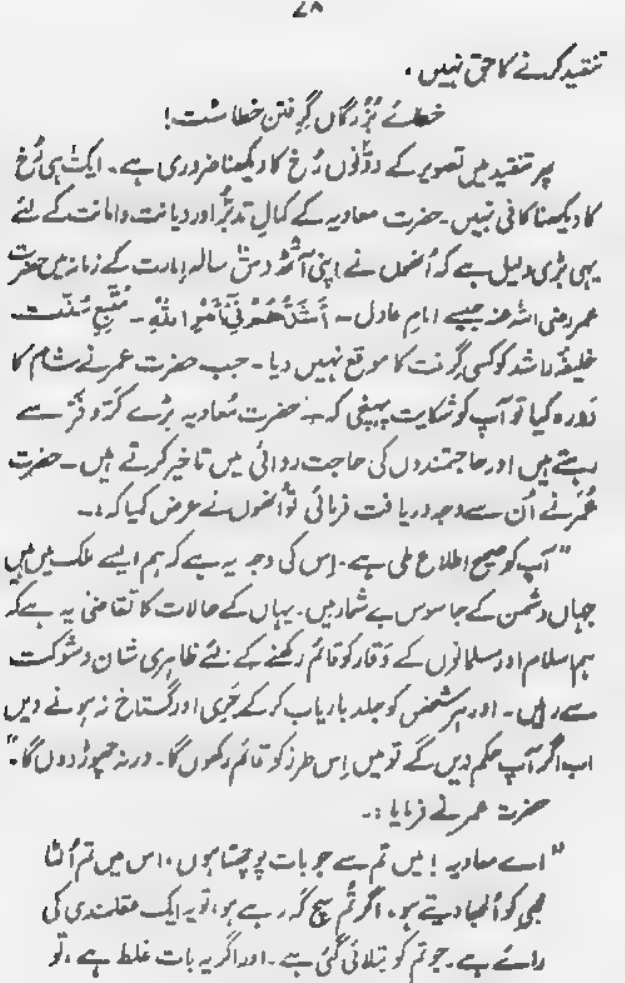 ۷۸
تنقید کرنے کا حق نہیں ۔
خطائے بُزرگاں گِرفتن خطا ست!
پھر تنقید میں تصویر کے دونوں رُخ کا دیکھنا ضروری ہے ۔ ایک ہی رُخ
کا دیکھنا کافی نہیں ۔ حضرت معاویہ کے کمالِ تدبُّر اور دیانت وامانت کے لئے
یہی بڑی دلیل ہے کہ اُنھوں نے اپنی آٹھ دس سالہ اِمارت کے زمانہ میں حضرت
عمر رضی اللہ عنہ جیسے امامِ عادل ۔ اَشَدُّهُمْ فِيْٓ اَمْرِ اللّٰهِ ۔ مُتَّبِعِ سُنّت
خلیفۂ راشد کو کسی گِرفت کا موقع نہیں دیا ۔ جب حضرت عمر نے شام کا
دَورہ کیا تو آپ کو شکایت پہنچی کہ :۔ حضرت مُعاویہ بڑے کَرّ و فَر سے
رہتے ہیں اور حاجتمندوں کی حاجت روائی میں تاخیر کرتے ہیں ۔ حضرت
عُمَر نے اُن سے وجہ دریافت فرمائی تو اُنھوں نے عرض کیا کہ :۔
"آپ کو صحیح اطلاع ملی ہے ۔ اِس کی وجہ یہ ہے کہ ہم ایسے ملک میں ہیں
جہاں دشمن کے جاسوس بے شمار ہیں ۔ یہاں کے حالات کا تقاضیٰ یہ ہے کہ
ہم اسلام اور مسلمانوں کے وَقار کو قائم رکھنے کے لئے ظاہری شان و شوکت
سے رہیں ۔ اور ہر شخص کو جلد باریاب کر کے جَری اور گستاخ نہ ہونے دیں
اب اگر آپ حکم دیں گے تو میں اِس طرز کو قائم رکھوں گا ۔ ورنہ چھوڑ دوں گا ۔"
حضرت عمر نے فرمایا :۔
"اے معاویہ ! میں تم سے جو بات پوچھتا ہوں ، اس میں تم اُلٹا
مجھی کو اُلجھا دیتے ہو ۔ اگر تُم سچ کہہ رہے ہو ، تو یہ ایک عقلمندی کی
رائے ہے ۔ جو تم کو بتلائی گئی ہے ۔ اور اگر یہ بات غلط ہے ، تو